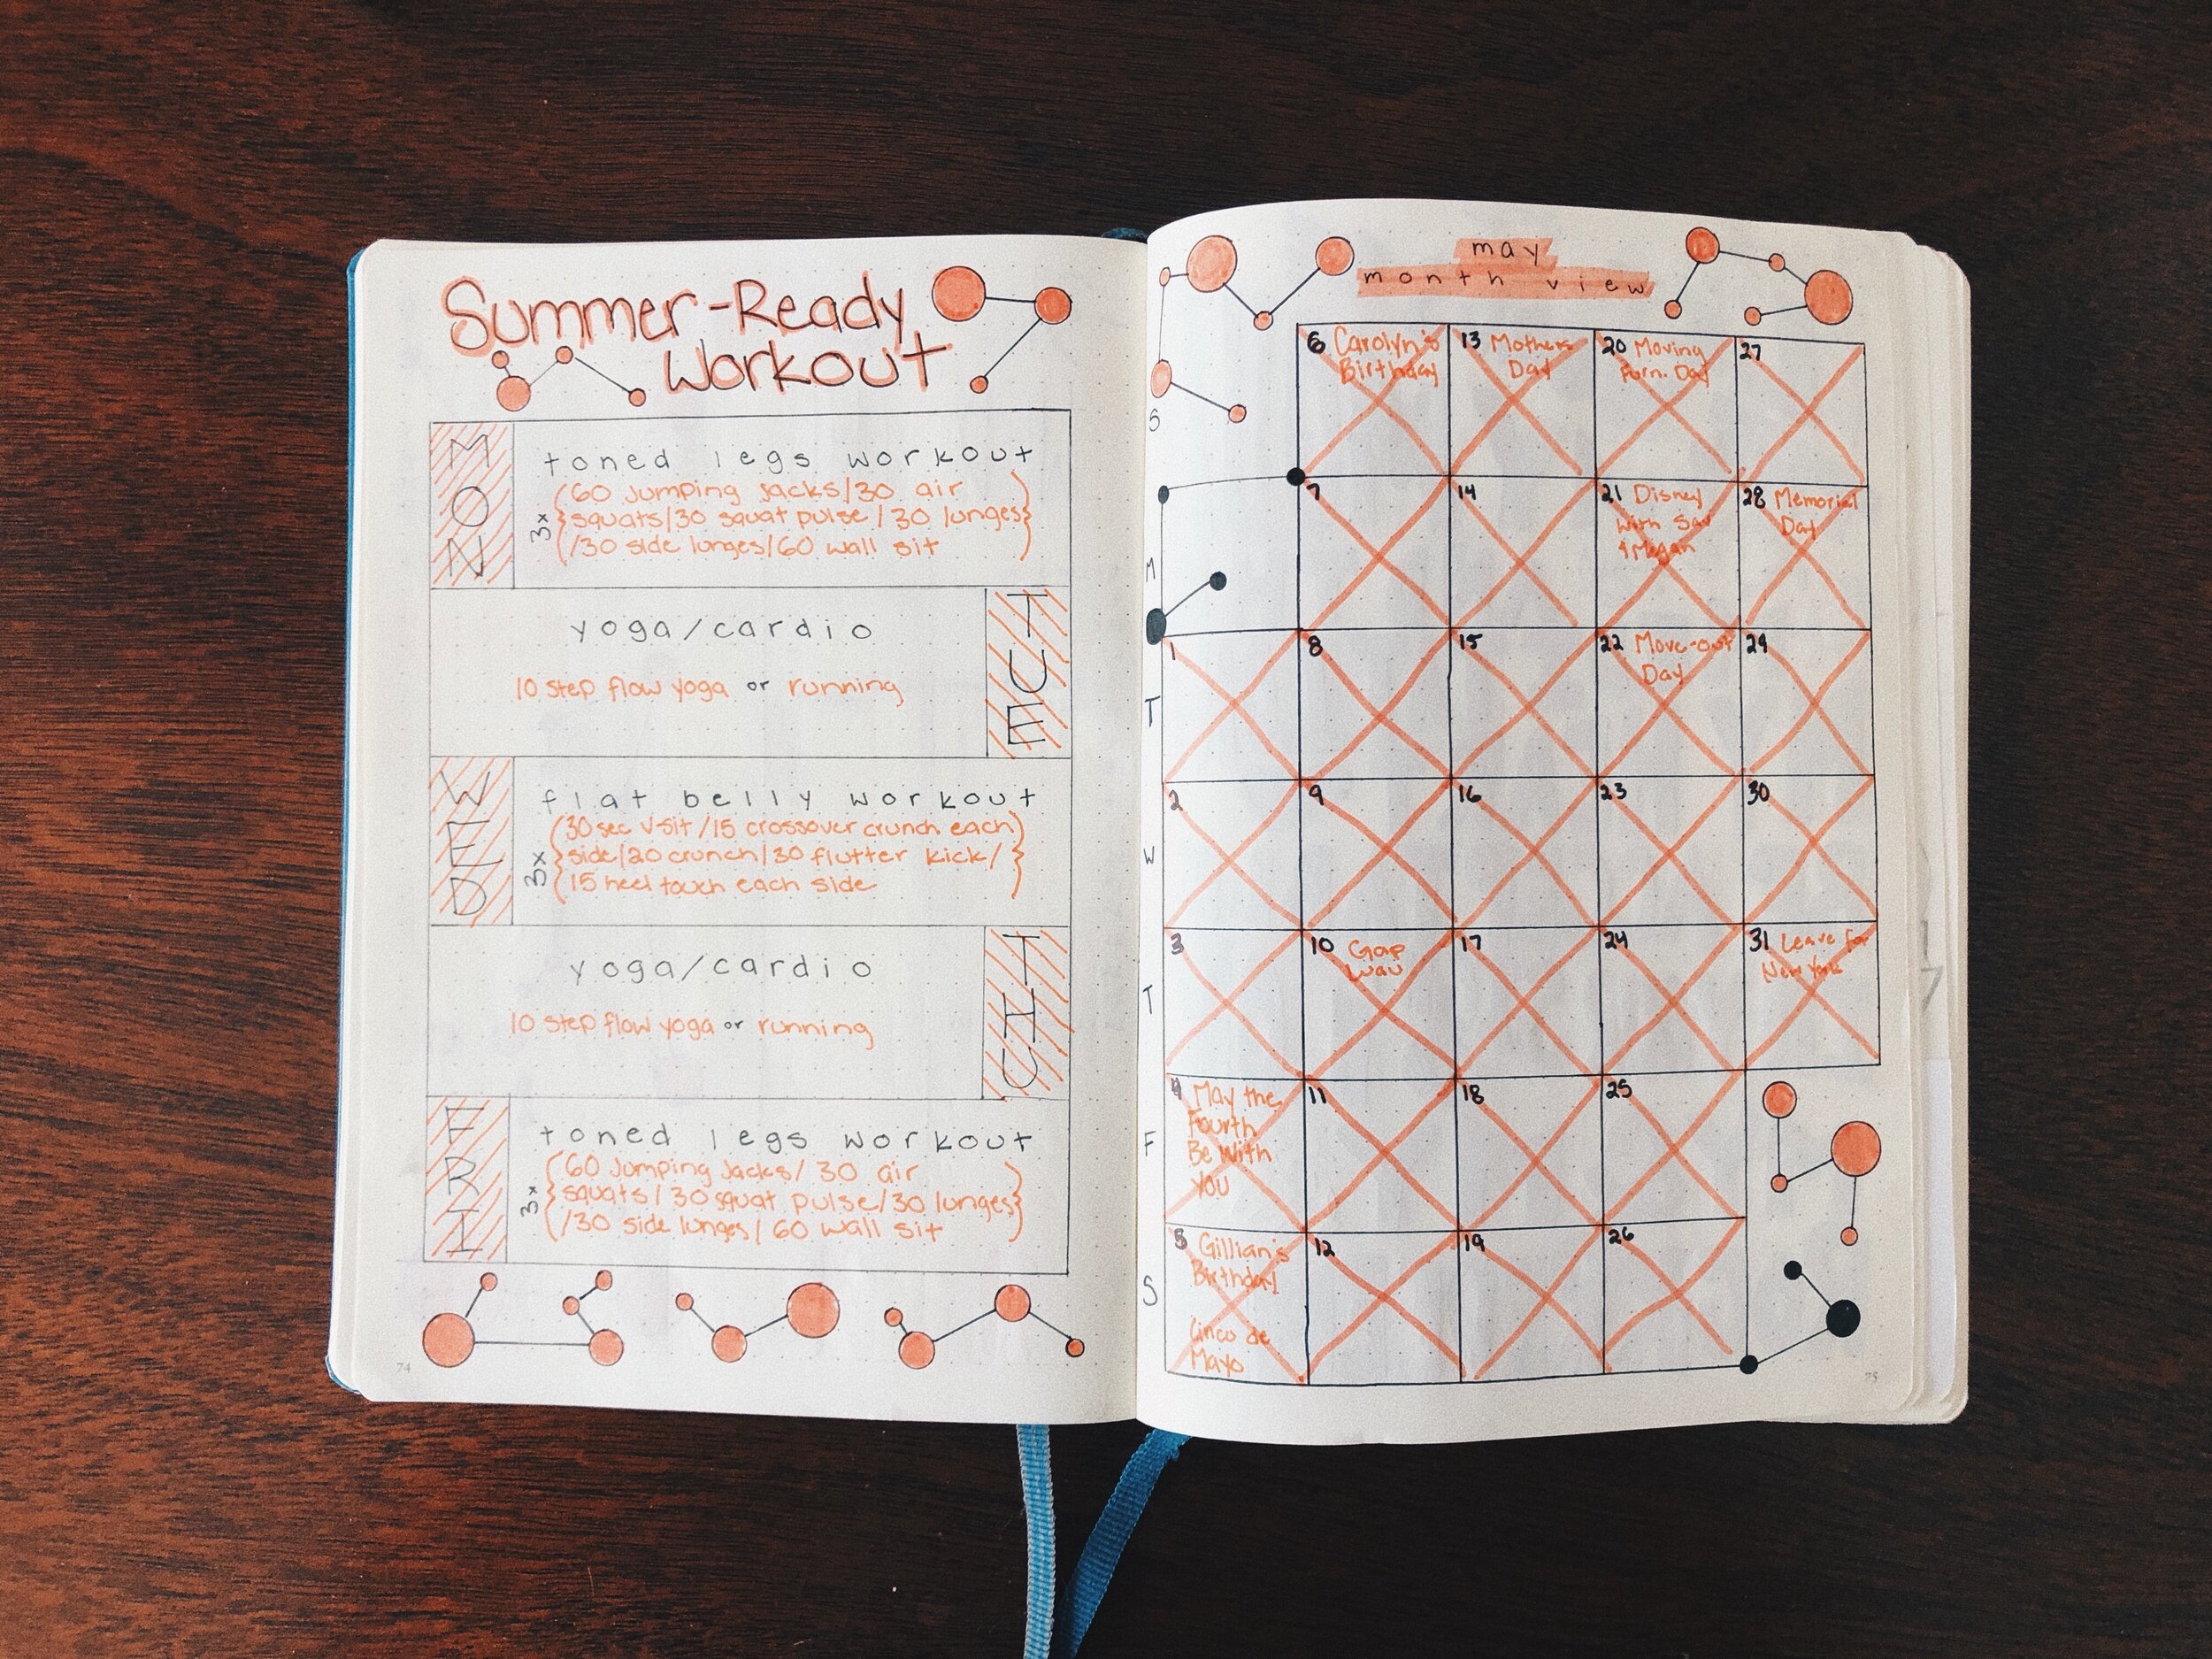 Summer-Ready
Workout
MON
toned legs workout
3x
(60 Jumping Jacks/30 air
squats/30 squat pulse/30 lunges
/30 side lunges/60 wall sit)
TUE
yoga/cardio
10 step flow yoga or running
WED
flat belly workout
3x
(30 sec V-sit/15 crossover crunch each
side/20 crunch/30 flutter kick/
15 heel touch each side)
THU
yoga/cardio
10 step flow yoga or running
FRI
toned legs workout
3x
(60 Jumping Jacks/30 air
squats/30 squat pulse/30 lunges
/30 side lunges/60 wall sit)
74
may
month view
S
6 Carolyn's
Birthday
13 Mothers
Day
20 Moving
Furn. Day
27
M
7
14
21 Disney
with Sav
& Megan
28 Memorial
Day
T
1
8
15
22 Move-out
Day
29
W
2
9
16
23
30
T
3
10 Gap
17
24
31 Leave for
New York
F
4 May the
Fourth
Be With
You
11
18
25
S
5 Gillian's
Birthday
Cinco de
Mayo
12
19
26
75